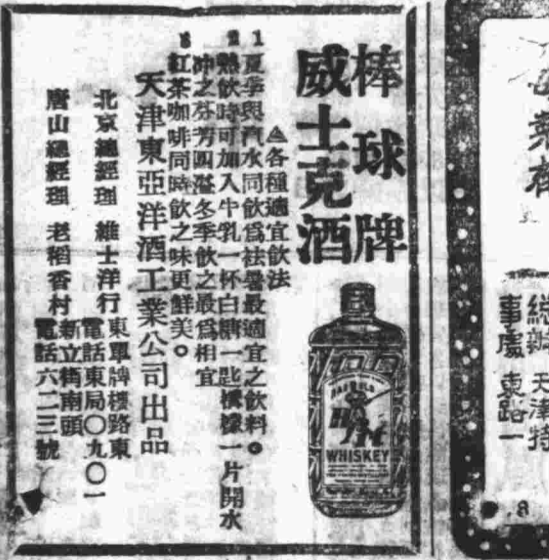 棒球牌
威士克酒
各種適宜飲法
1 夏季與汽水同飲爲祛暑最適宜之飲料。
2 熱飲時可加入牛乳一杯白糖一匙檸檬一片開水
沖之芬芳四溢冬季飲之最爲相宜
3 紅茶咖啡同時飲之味更鮮美。
天津東亞洋酒工業公司出品
北京總經理 維士洋行
東單牌樓路東
電話東局〇九〇一
唐山總經理 老稻香村
新立街南頭
電話六二三號
WHISKEY
總辦 天津特
事處 東路一